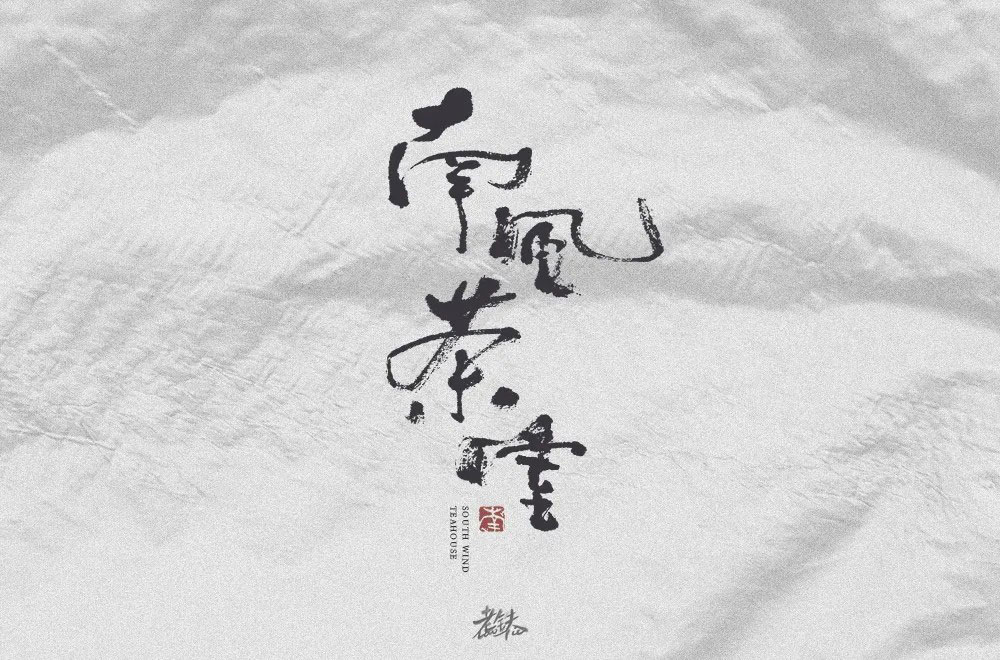 南
風
茶
SOUTH WIND
TEAHOUSE